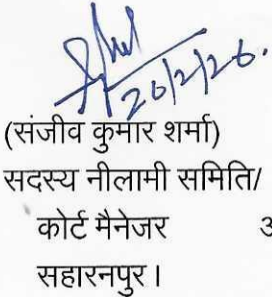 20/2/26.
(संजीव कुमार शर्मा)
सदस्य नीलामी समिति/
कोर्ट मैनेजर
सहारनपुर।